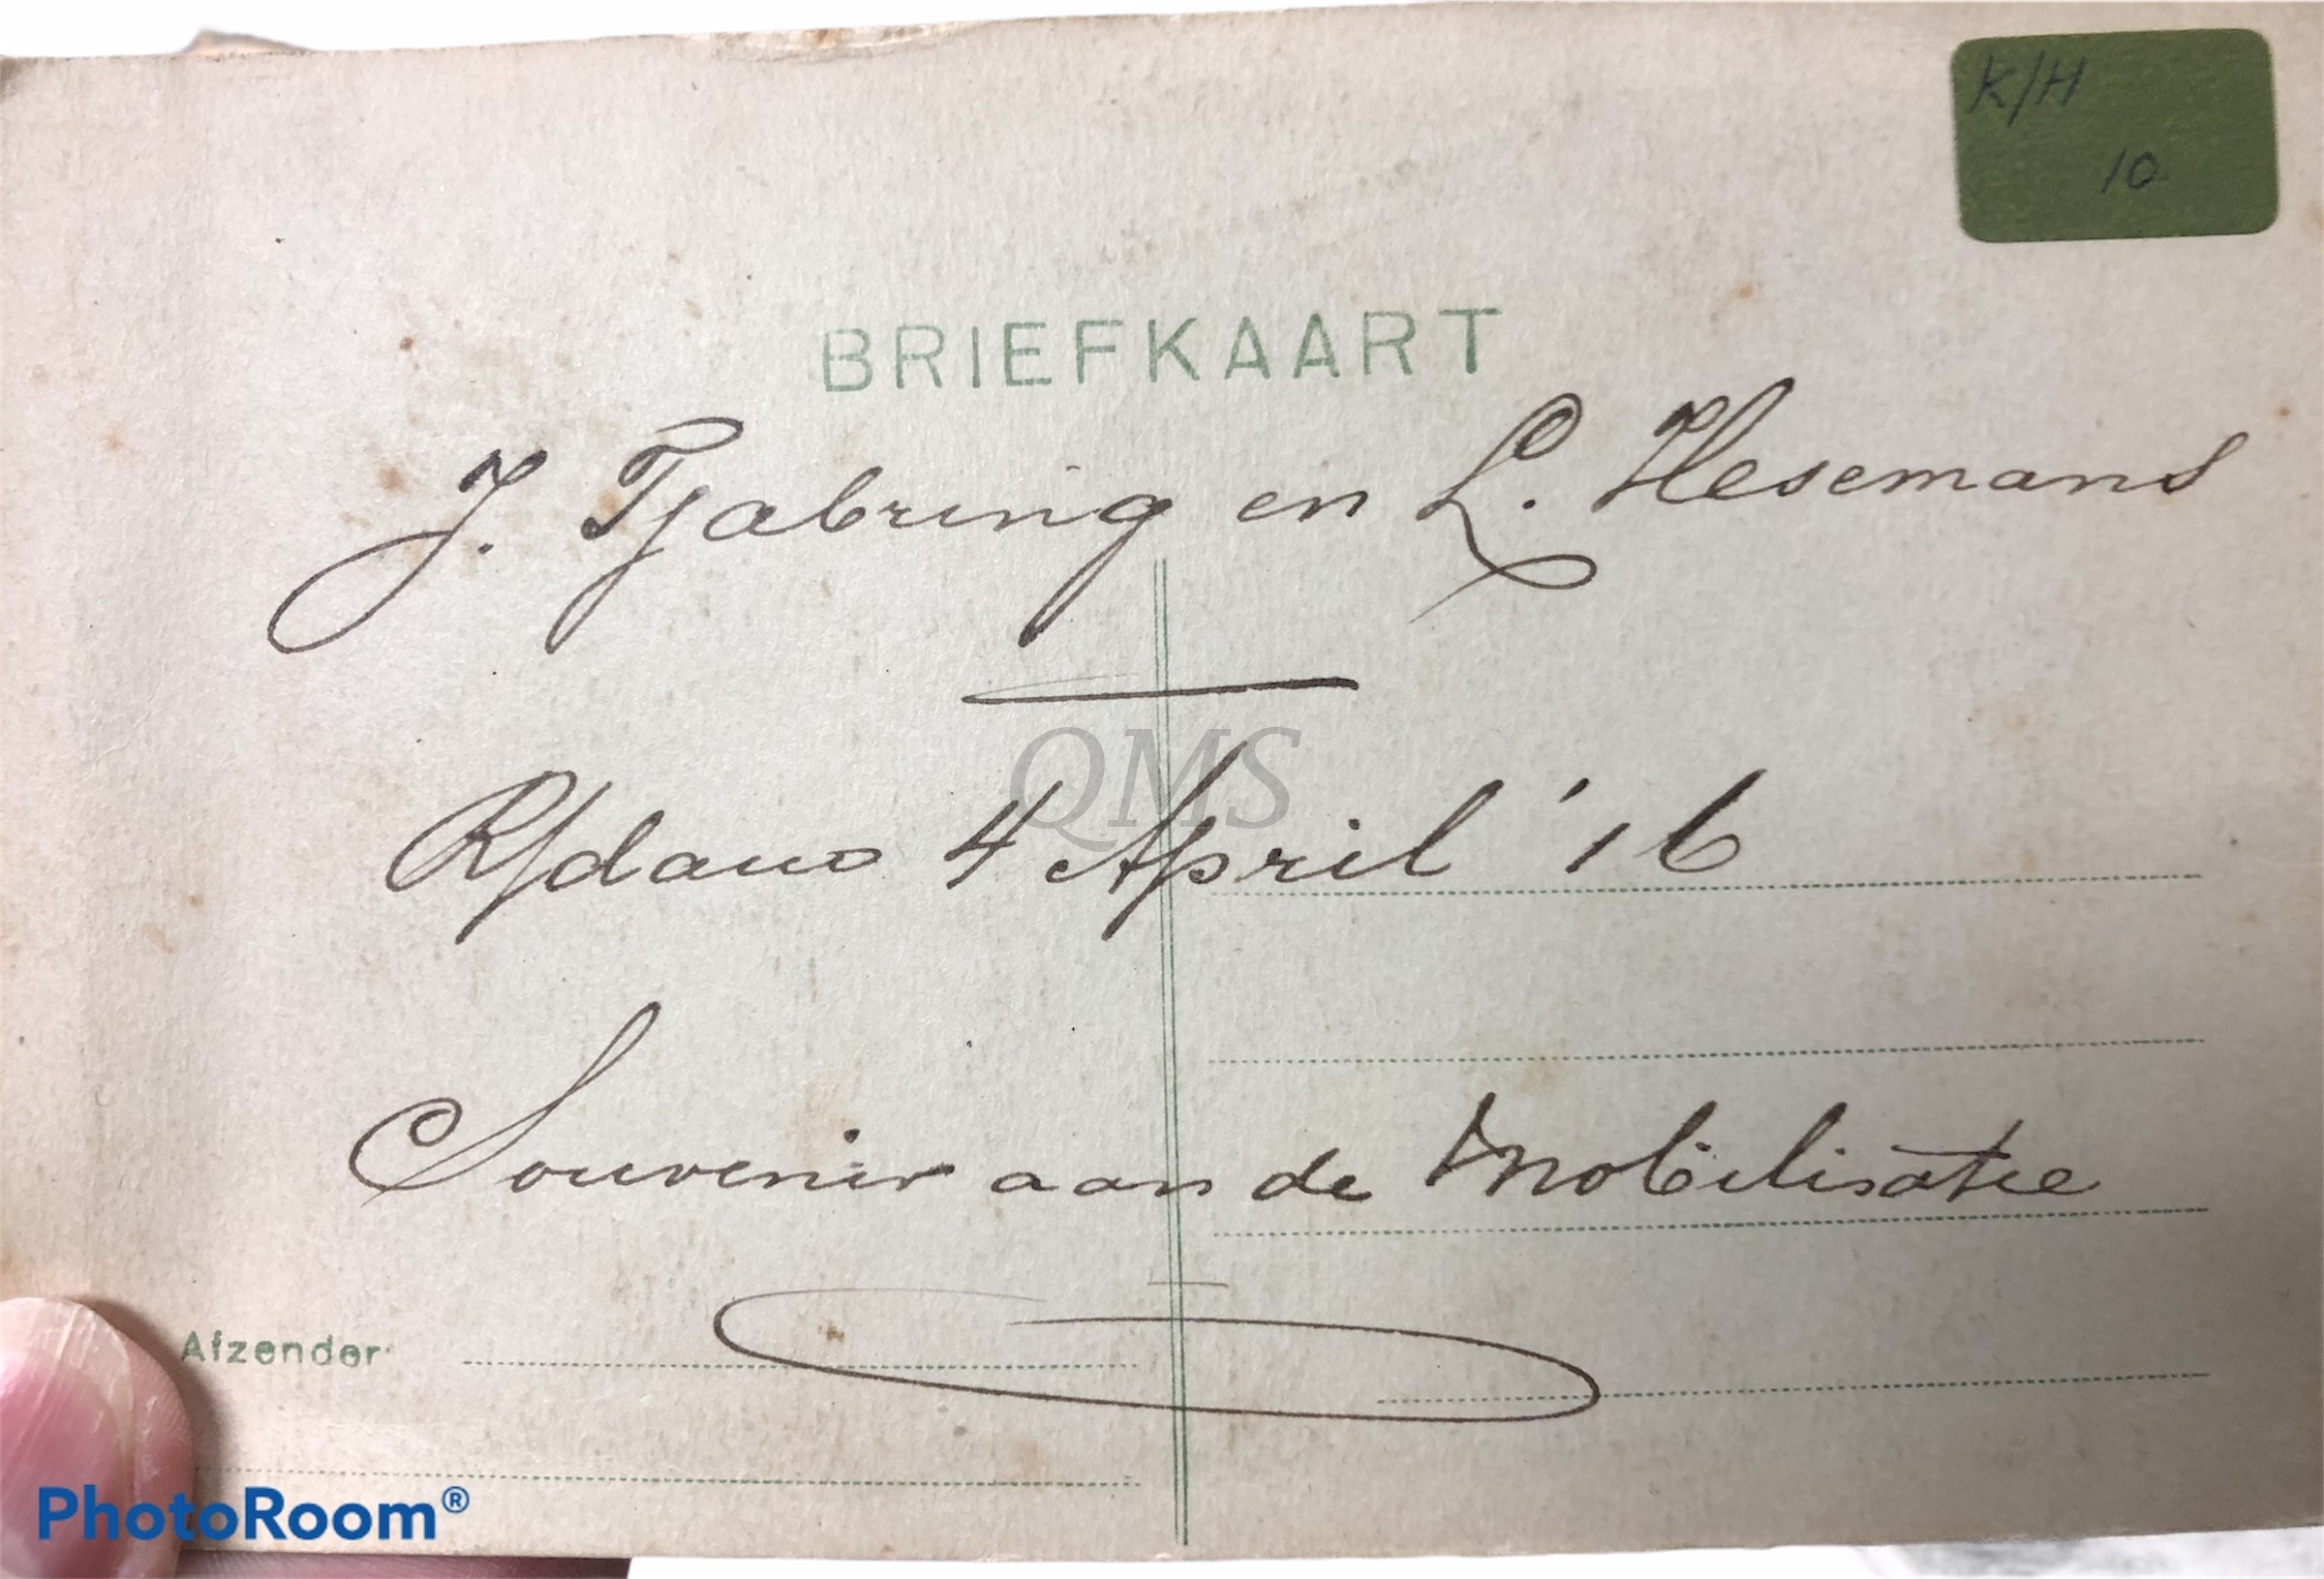 K/H
10
BRIEFKAART
J. Tjabring en L. Hesemans
R/dam 4 April '16
QMS
Souvenir aan de Mobilisatie
Afzender
PhotoRoom®